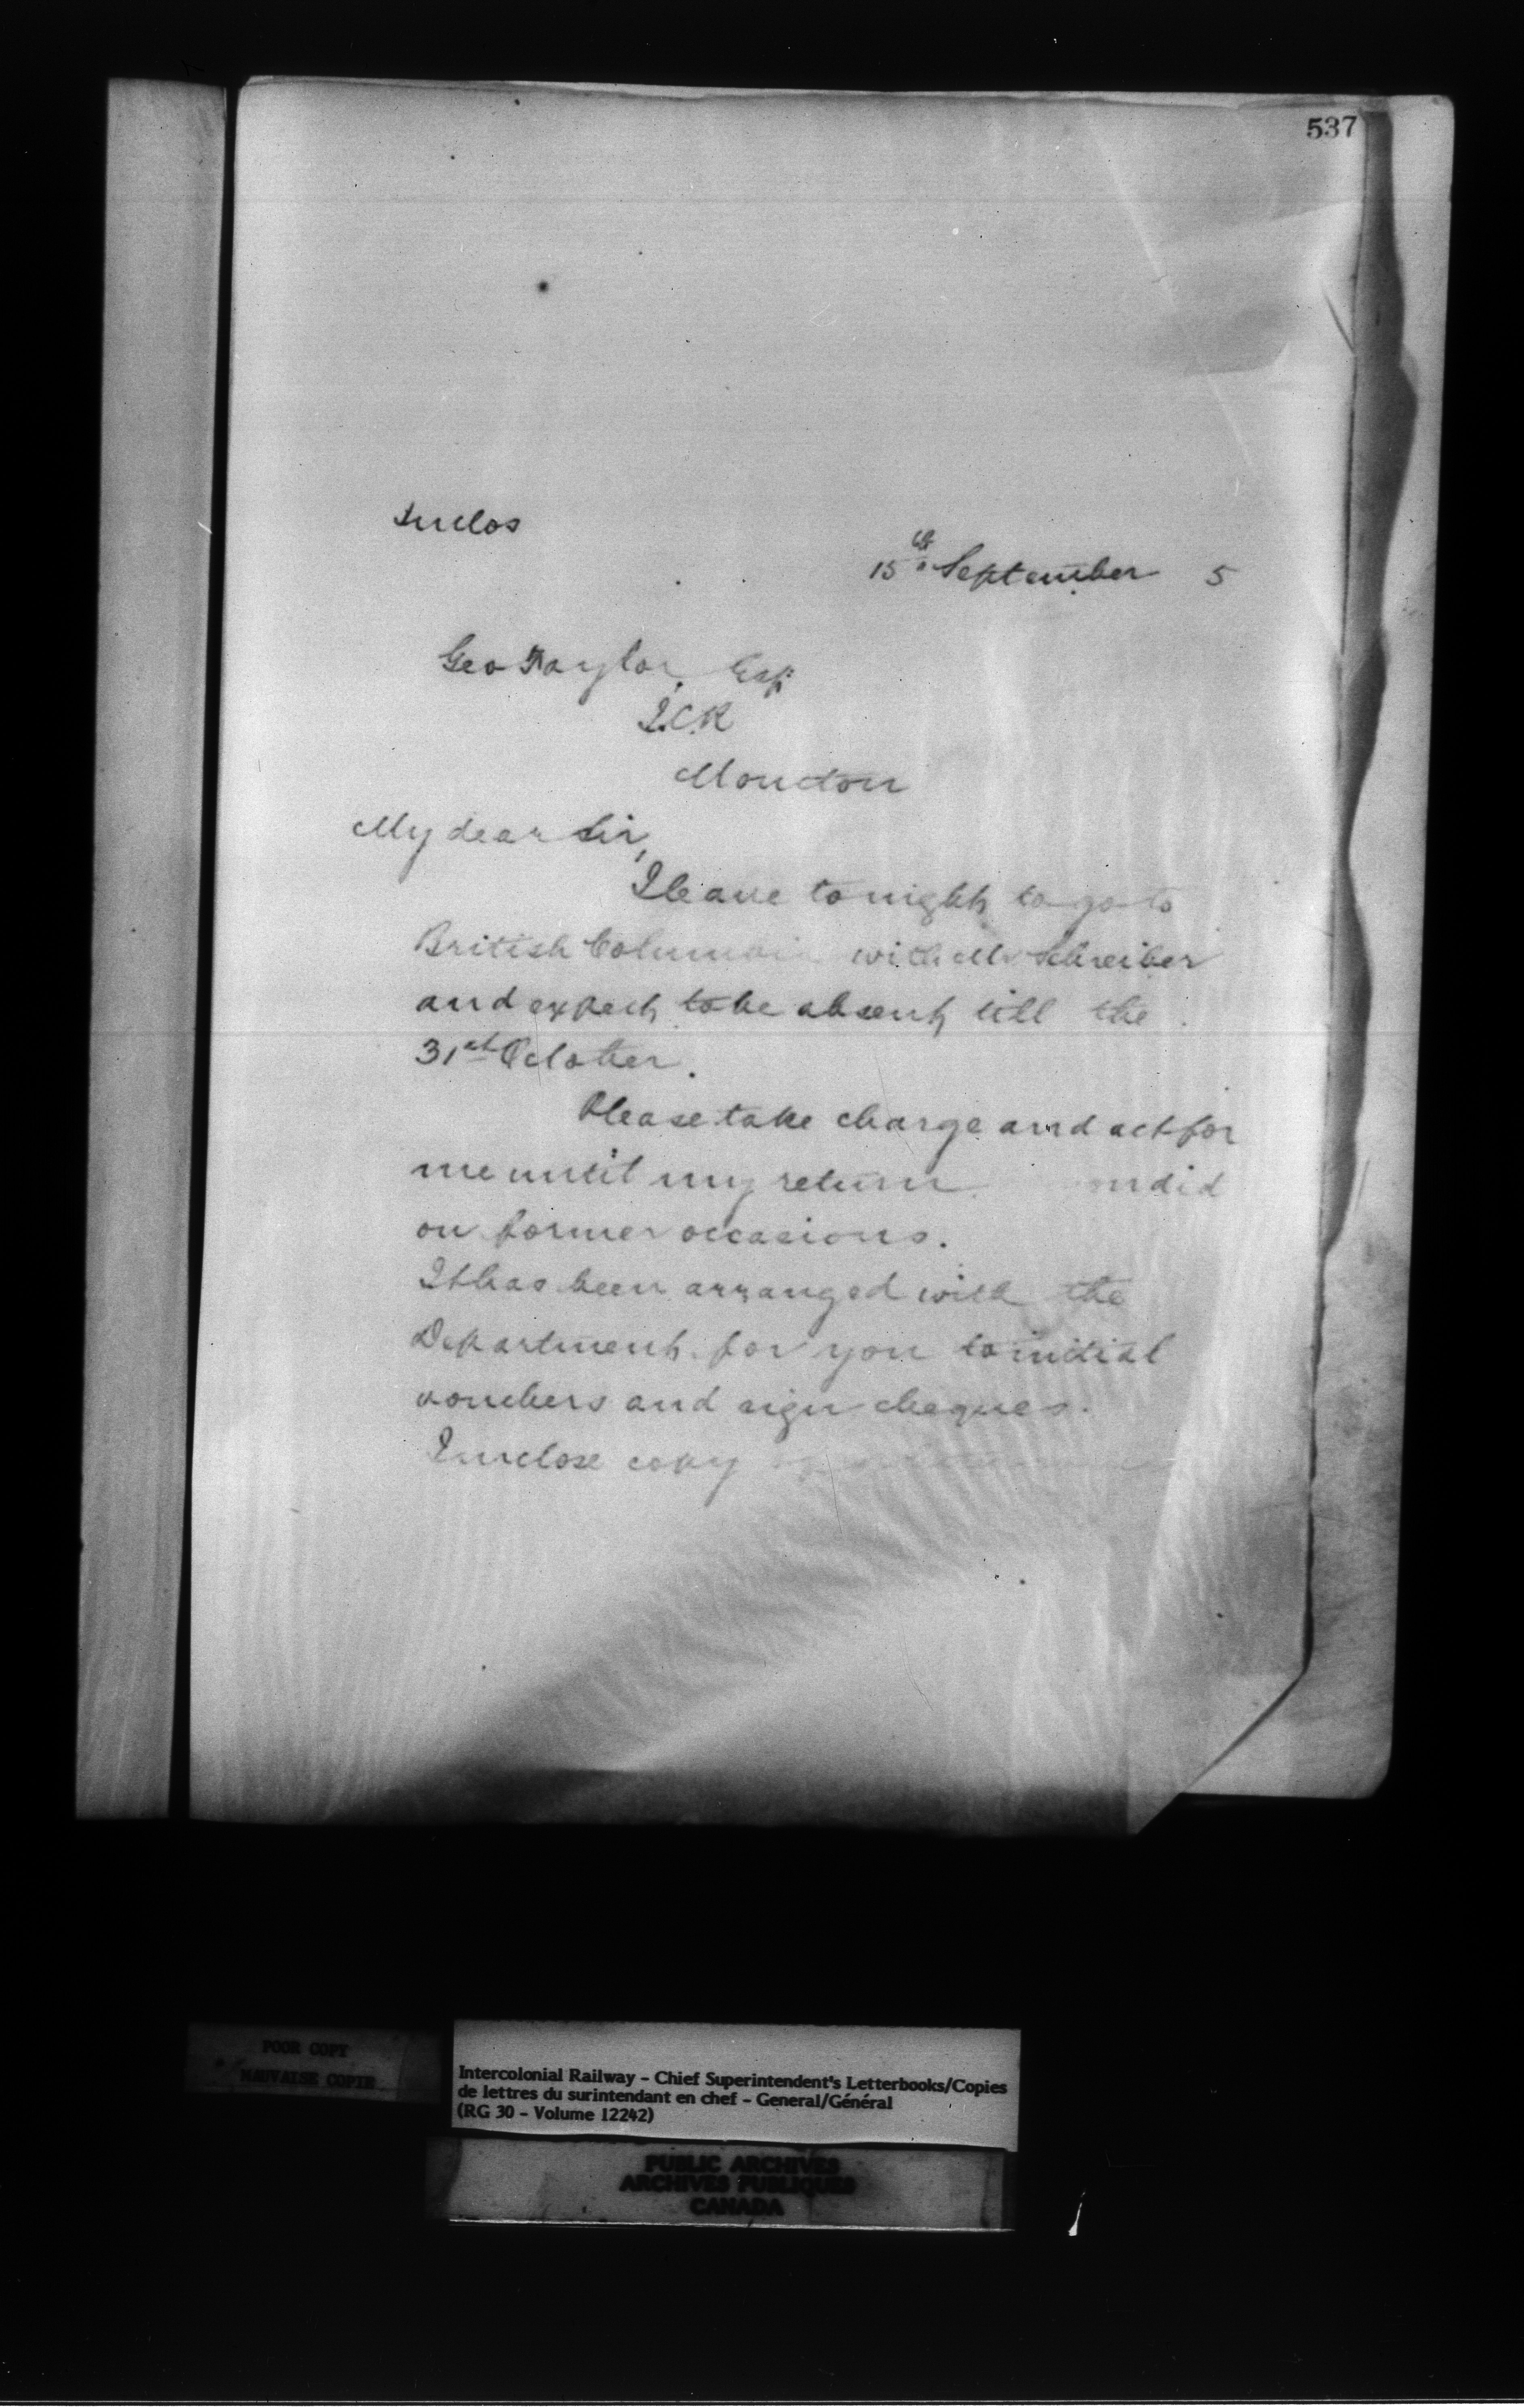 537
Inclos
15th September 5
Geo Taylor, Esq
I.C.R
Moncton
My dear Sir,
I leave tonight to go to
British Columbia with Mr Schreiber
and expect to be absent till the
31st October.
Please take charge and act for
me until my return did
on former occasions.
It has been arranged with the
Department for you to initial
vouchers and sign cheques.
I inclose copy
POOR COPY
MAUVAISE COPIE
Intercolonial Railway - Chief Superintendent's Letterbooks/Copies
de lettres du surintendant en chef - General/Général
(RG 30 - Volume 12242)
PUBLIC ARCHIVES
ARCHIVES PUBLIQUES
CANADA